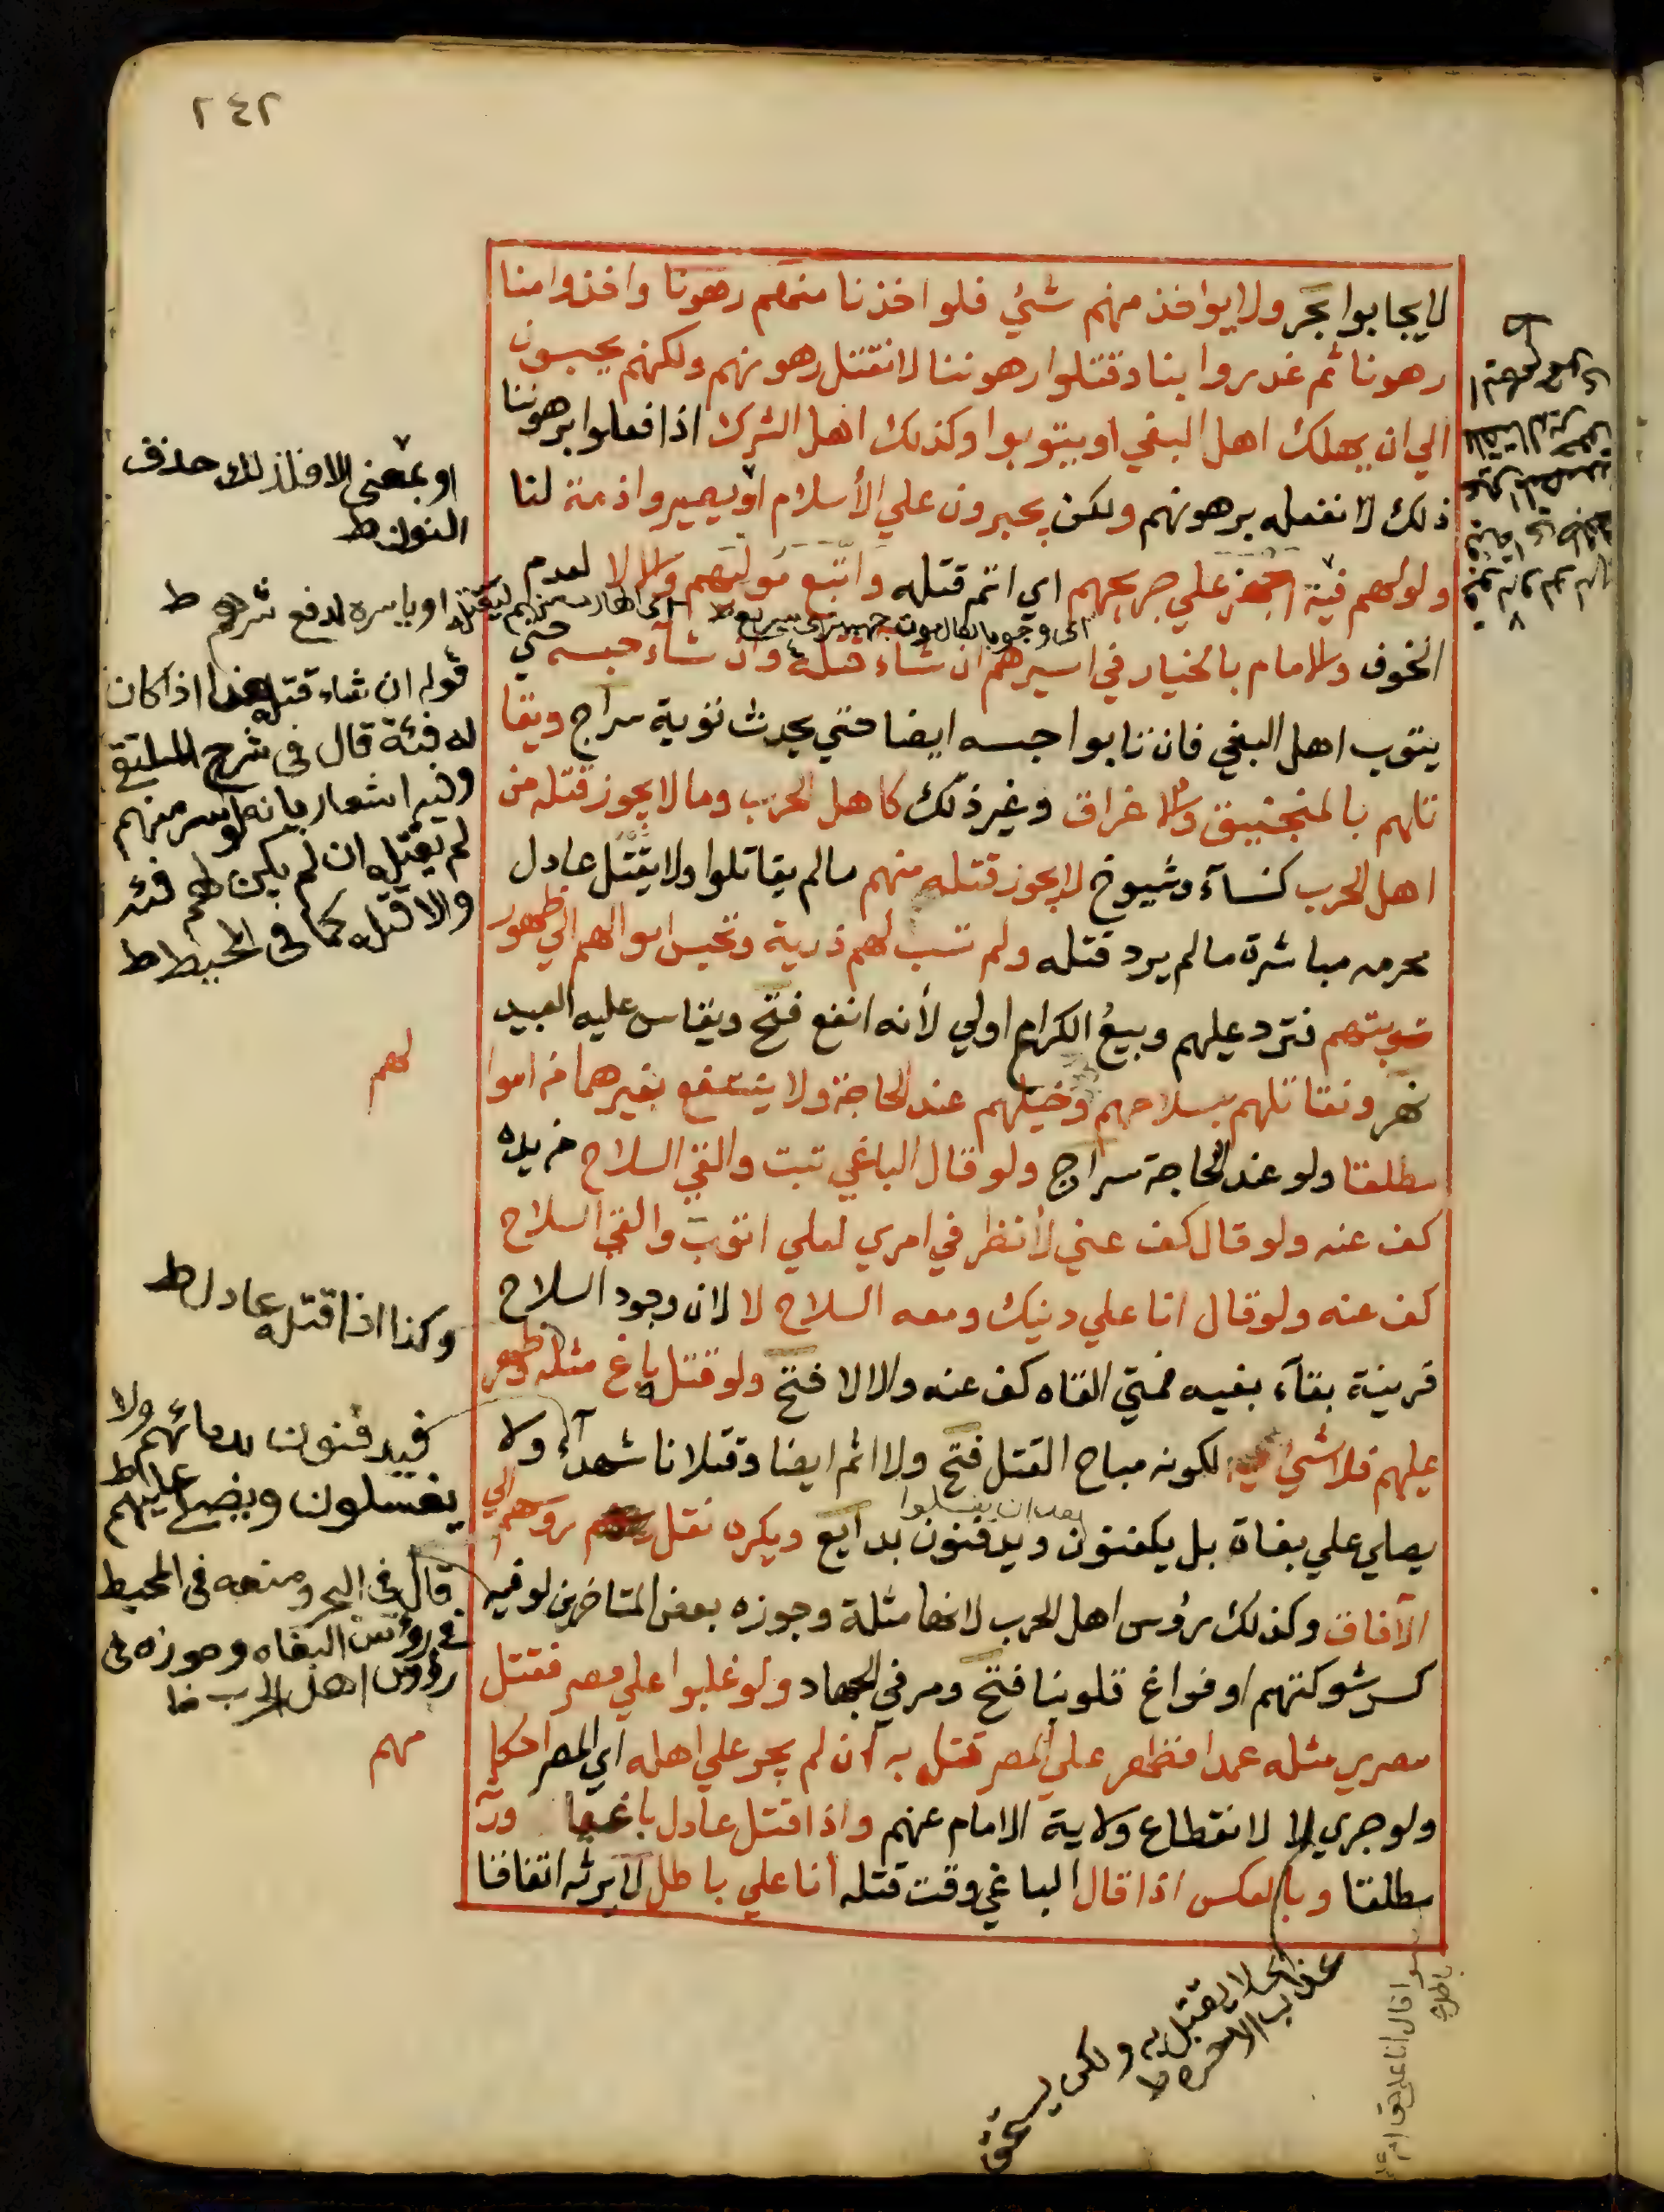 ٢٤٢
لا يجابوا بحر ولا يؤاخذ منهم شئ فلو اخذنا منهم رهونا واخذوا منا
رهونا ثم غدروا بنا وقتلوا رهوننا لا نقتل رهونهم ولكنهم يحبسون
الي ان يهلك اهل البغي او يتوبوا وكذلك اهل الشرك اذا فعلوا برهوننا
ذلك لا نفعله برهونهم ولكن يجبرون علي الأسلام او يصيروا ذمة لنا
ولو لهم فئة اجهز علي جريحهم اي اتم قتله واتبع موليهم والا لا لعدم
الخوف والامام بالخيار في اسيرهم ان شاء قتله وان شاء حبسه حتي
يتوب اهل البغي فان تابوا حبسه ايضا حتي يحدث توبة سراج ونقا
تلهم بالمنجنيق والاغراق وغير ذلك كاهل الحرب وما لا يجوز قتله من
اهل الحرب كنسآء وشيوخ لا يجوز قتله منهم ما لم يقاتلوا ولا يقتل عادل
محرمه مباشرة ما لم يرد قتله ولم تسب لهم ذرية وتحبس اموالهم الي ظهور
توبتهم فترد عليهم وبيع الكراع اولي لأنه انفع فتح ويقاس عليه العبيد
نهر ونقاتلهم بسلاحهم وخيلهم عند الحاجة ولا ينتفع بغيرهما من اموا
مطلقا ولو عند الحاجة سراج ولو قال الباغي تبت والقي السلاح من يده
كف عنه ولو قال كف عني لأنظر في امري لعلي اتوب والقي السلاح
كف عنه ولو قال انا علي دينك ومعه السلاح لا لان وجود السلاح
قرينة بقآء بغيه فمتي القاه كف عنه والا لا فتح ولو قتل باغ مثله فظهر
عليهم فلا شئ فيه لكونه مباح القتل فتح ولا اثم ايضا وقتلانا شهدآء ولا
يصلي علي بغاة بل يكفنون ويدفنون بدايع ويكره نقل رؤسهم الي
بعد ان يغسلوا
الآفاق وكذلك رؤس اهل الحرب لانها مثلة وجوزه بعض المتاخرين لو فيه
كسر شوكتهم او فراغ قلوبنا فتح ومر في الجهاد ولو غلبوا علي مصر فقتل
مصري مثله عمدا فظهر علي المصر قتل به ان لم يجر علي اهله اي المصر احكا
ولو جري لا لانقطاع ولاية الامام عنهم واذا قتل عادل باغيا ورثه
مطلقا وبالعكس اذا قال الباغي وقت قتله أنا علي باطل لا يرثه اتفاقا
او بمعنى الا فلذلك حذف
النون ط
اى وجوبا
ليقتله او ياسره لدفع شرهم ط
قوله ان شاء قتله هذا اذا كان
له فئة قال فى شرح الملتقى
وفيه اشعار بانه لو اسر منهم
لم يقتله ان لم يكن لهم فئة
والا قتله كما فى المحيط ط
لهم
وكذا اذا قتله عادل ط
فيدفنون بدمائهم ولا
يغسلون ويصلى عليهم ط
قال فى البحر ومنعه فى المحيط
فى رؤس البغاه وجوزه فى
رؤس اهل الحرب
مهم
اى لا يقتل به ولكن يستحق
عذاب الاخره ط